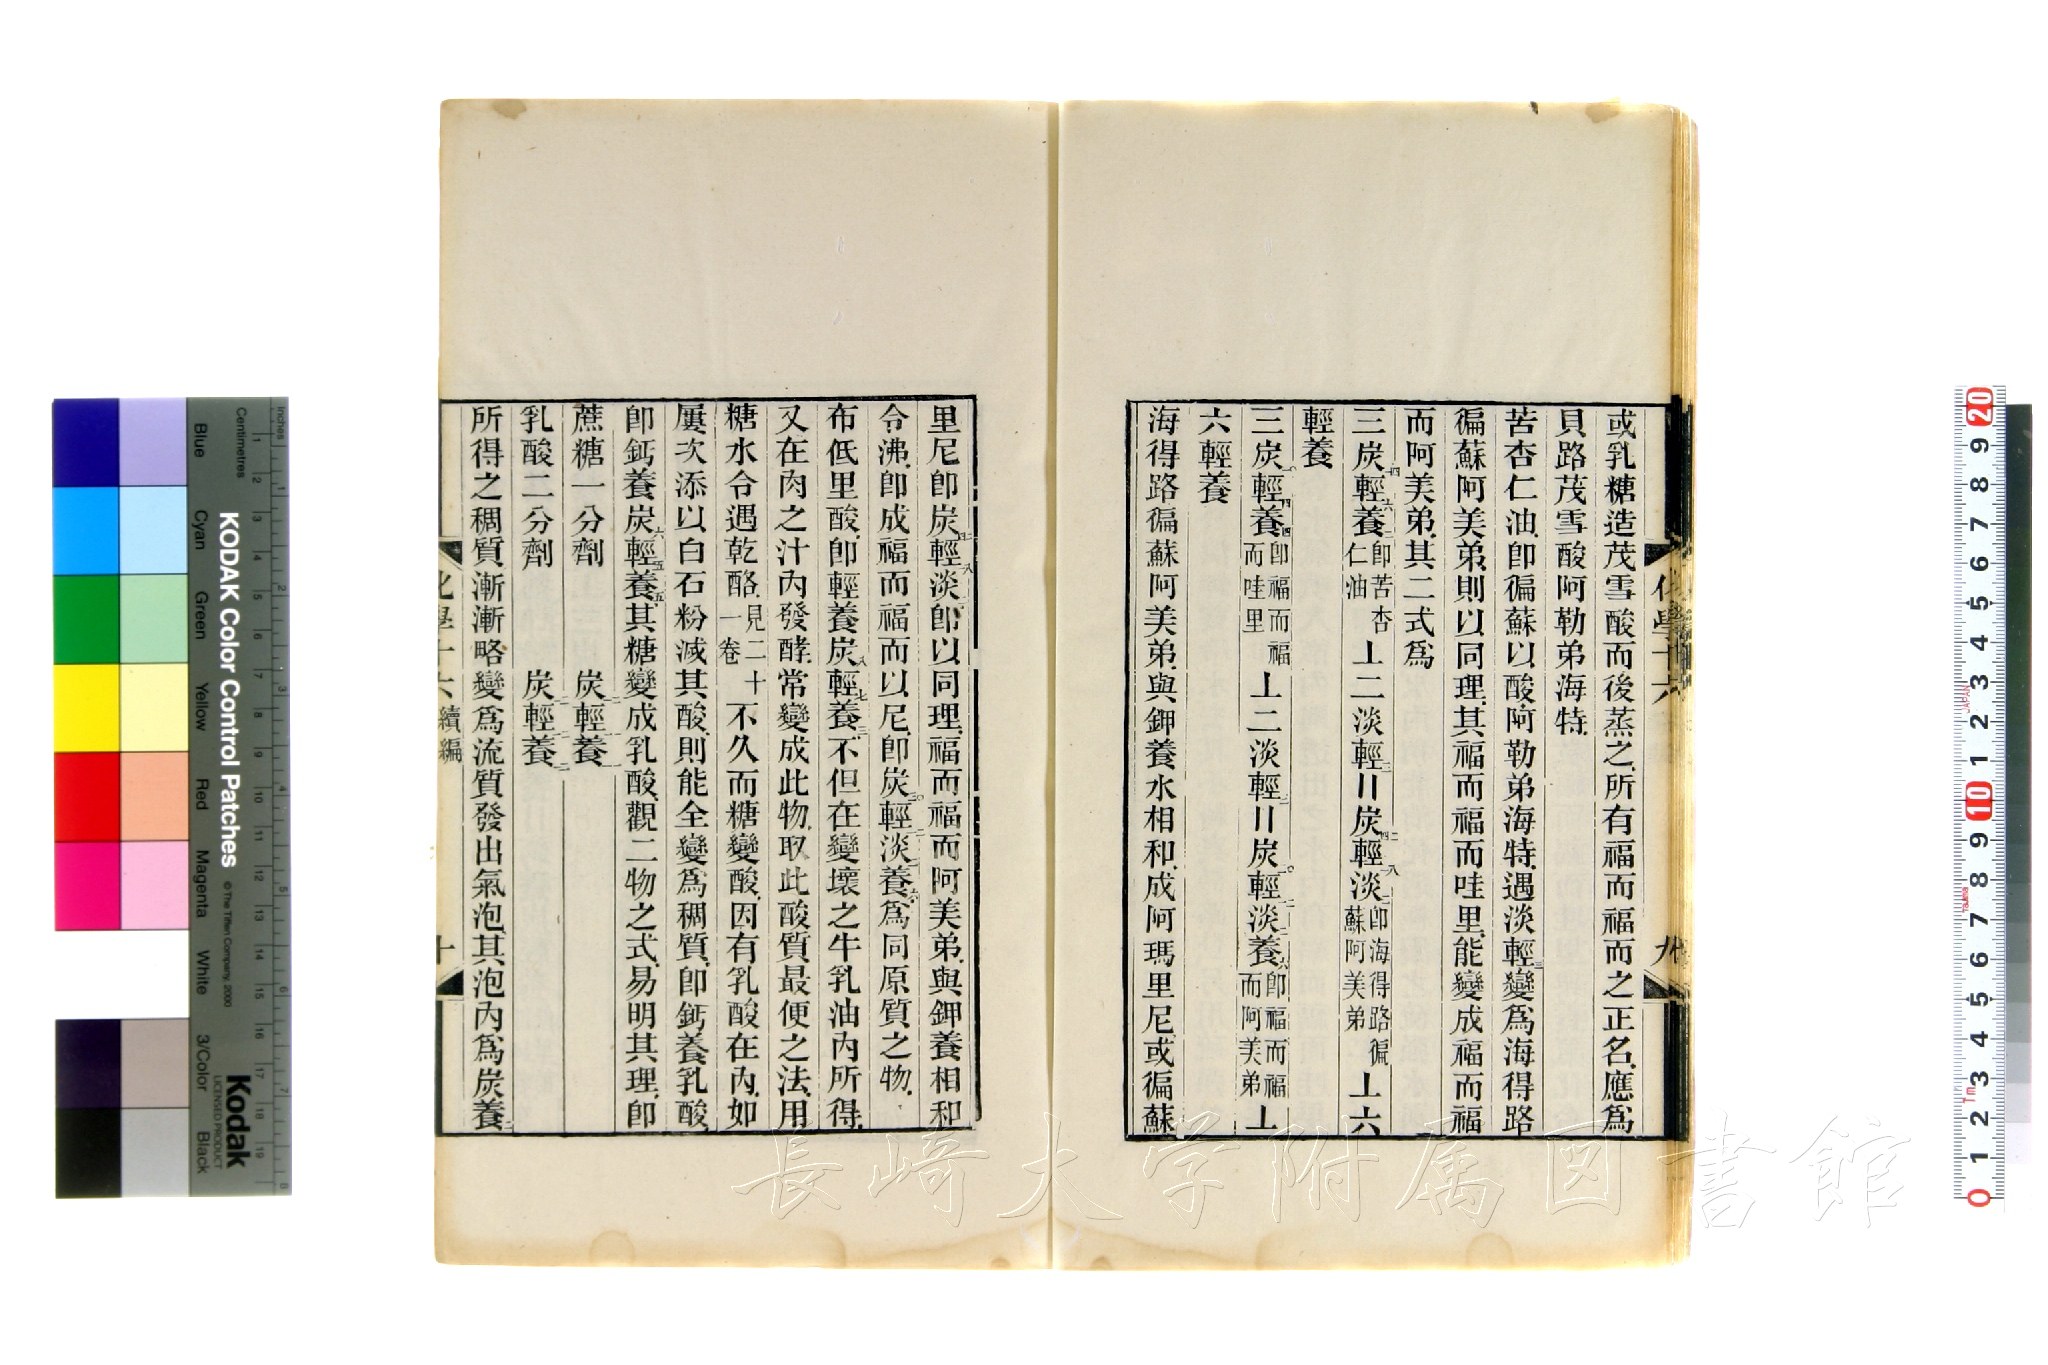 或乳糖造茂雪酸而後蒸之所有福而福而之正名應爲
貝路茂雪酸阿勒弟海特
苦杏仁油卽徧蘇以酸阿勒弟海特遇淡輕三變爲海得路
徧蘇阿美弟則以同理其福而福而哇里能變成福而福
而阿美弟其二式爲
三炭輕養卽苦杏仁油 ⊥二淡輕〢炭輕淡卽海得路徧蘇阿美弟⊥六
輕養
三炭輕養卽福而福而哇里⊥二淡輕〢炭輕淡養卽福而福而阿美弟⊥
六輕養
海得路徧蘇阿美弟與鉀養水相和成阿瑪里尼或徧蘇
化學十六 九
里尼卽炭輕淡卽以同理福而福而阿美弟與鉀養相和
令沸卽成福而福而以尼卽炭輕淡養爲同原質之物
布低里酸卽輕養炭輕養不但在變壞之牛乳油內所得
又在肉之汁內發酵常變成此物取此酸質最便之法用
糖水令遇乾酪見二十一卷不久而糖變酸因有乳酸在內如
屢次添以白石粉減其酸則能全變爲稠質卽鈣養乳酸
卽鈣養炭輕養其糖變成乳酸觀二物之式易明其理卽
蔗糖一分劑 炭輕養
乳酸二分劑 炭輕養
所得之稠質漸漸略變爲流質發出氣泡其泡內爲炭養
化學十六續編 十
長崎大学附属図書館
KODAK Color Control Patches
© The Tiffen Company, 2000
Kodak
LICENSED PRODUCT
Inches
Centimetres
Blue
Cyan
Green
Yellow
Red
Magenta
White
3/Color
Black
JAPAN
Tajima